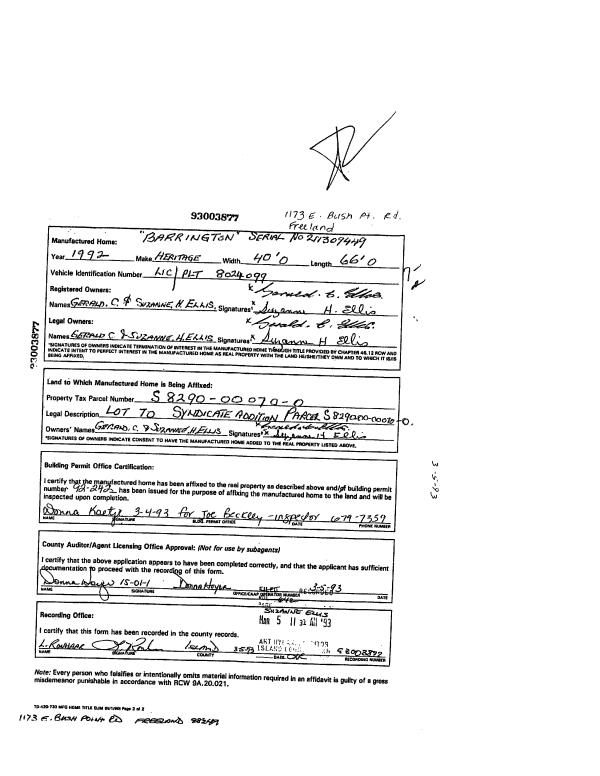 93003877
1173 E. BUSH Pt. Rd.
Freeland
Manufactured Home: "BARRINGTON" SERIAL NO 211309449
Year 1992 Make HERITAGE Width 40'0 Length 66'0
Vehicle Identification Number LIC/PLT 8024099
Registered Owners:
Names GERALD. C. & SUZANNE. H. ELLIS. Signatures x Gerald C. Ellis
x Suzanne H Ellis
Legal Owners:
Names GERALD C & SUZANNE. H. ELLIS Signatures x Gerald C. Ellis.
x Suzanne H Ellis
*SIGNATURES OF OWNERS INDICATE TERMINATION OF INTEREST IN THE MANUFACTURED HOME THROUGH TITLE PROVIDED BY CHAPTER 46.12 RCW AND
INDICATE INTENT TO PERFECT INTEREST IN THE MANUFACTURED HOME AS REAL PROPERTY WITH THE LAND HE/SHE/THEY OWN AND TO WHICH IT IS/IS
BEING AFFIXED.
93003877
Land to Which Manufactured Home is Being Affixed:
Property Tax Parcel Number S 8290-00070-0
Legal Description LOT 70 SYNDICATE ADDITION PARCEL S 8290-00-00070-0.
Owners' Names GERALD. C. & SUZANNE H. ELLIS Signatures* x
x Suzanne H Ellis
*SIGNATURES OF OWNERS INDICATE CONSENT TO HAVE THE MANUFACTURED HOME ADDED TO THE REAL PROPERTY LISTED ABOVE.
Building Permit Office Certification:
I certify that the manufactured home has been affixed to the real property as described above and/or building permit
number 92-242 has been issued for the purpose of affixing the manufactured home to the land and will be
inspected upon completion.
Donna 3-4-93 for Joe Beckley - inspector 679-7357
NAME SIGNATURE BLDG. PERMIT OFFICE DATE PHONE NUMBER
3-5-93
County Auditor/Agent Licensing Office Approval: (Not for use by subagents)
I certify that the above application appears to have been completed correctly, and that the applicant has sufficient
documentation to proceed with the recording of this form.
Donna 15-01-1 Donna 3-5-93
NAME SIGNATURE OFFICE/CAAP OPERATOR NUMBER DATE
SUZANNE ELLIS
MAR 5 11 32 AM '93
Recording Office:
I certify that this form has been recorded in the county records.
ISLAND 93003877
NAME SIGNATURE COUNTY DATE RECORDING NUMBER
Note: Every person who falsifies or intentionally omits material information required in an affidavit is guilty of a gross
misdemeanor punishable in accordance with RCW 9A.20.021.
TD-420-730 MFG HOME TITLE ELIM Page 2 of 2
1173 E. BUSH POINT RD FREELAND 98249